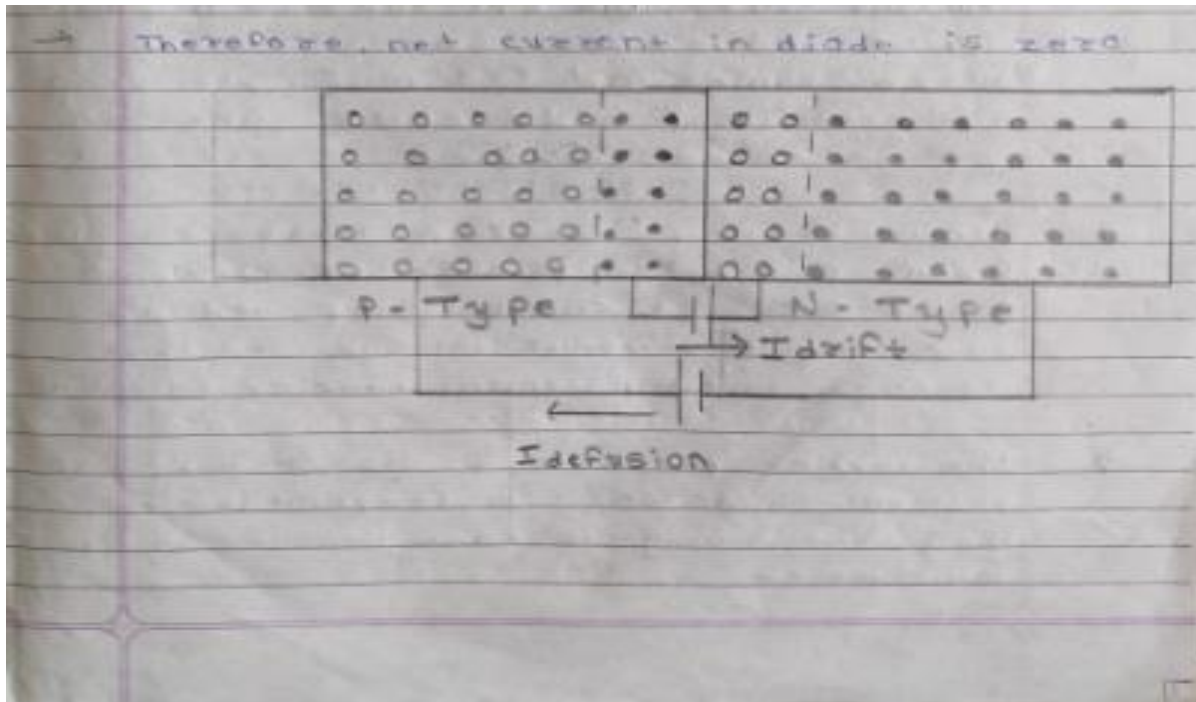 → Therefore, net current in diode is zero
P - Type N - Type
I drift
I defusion